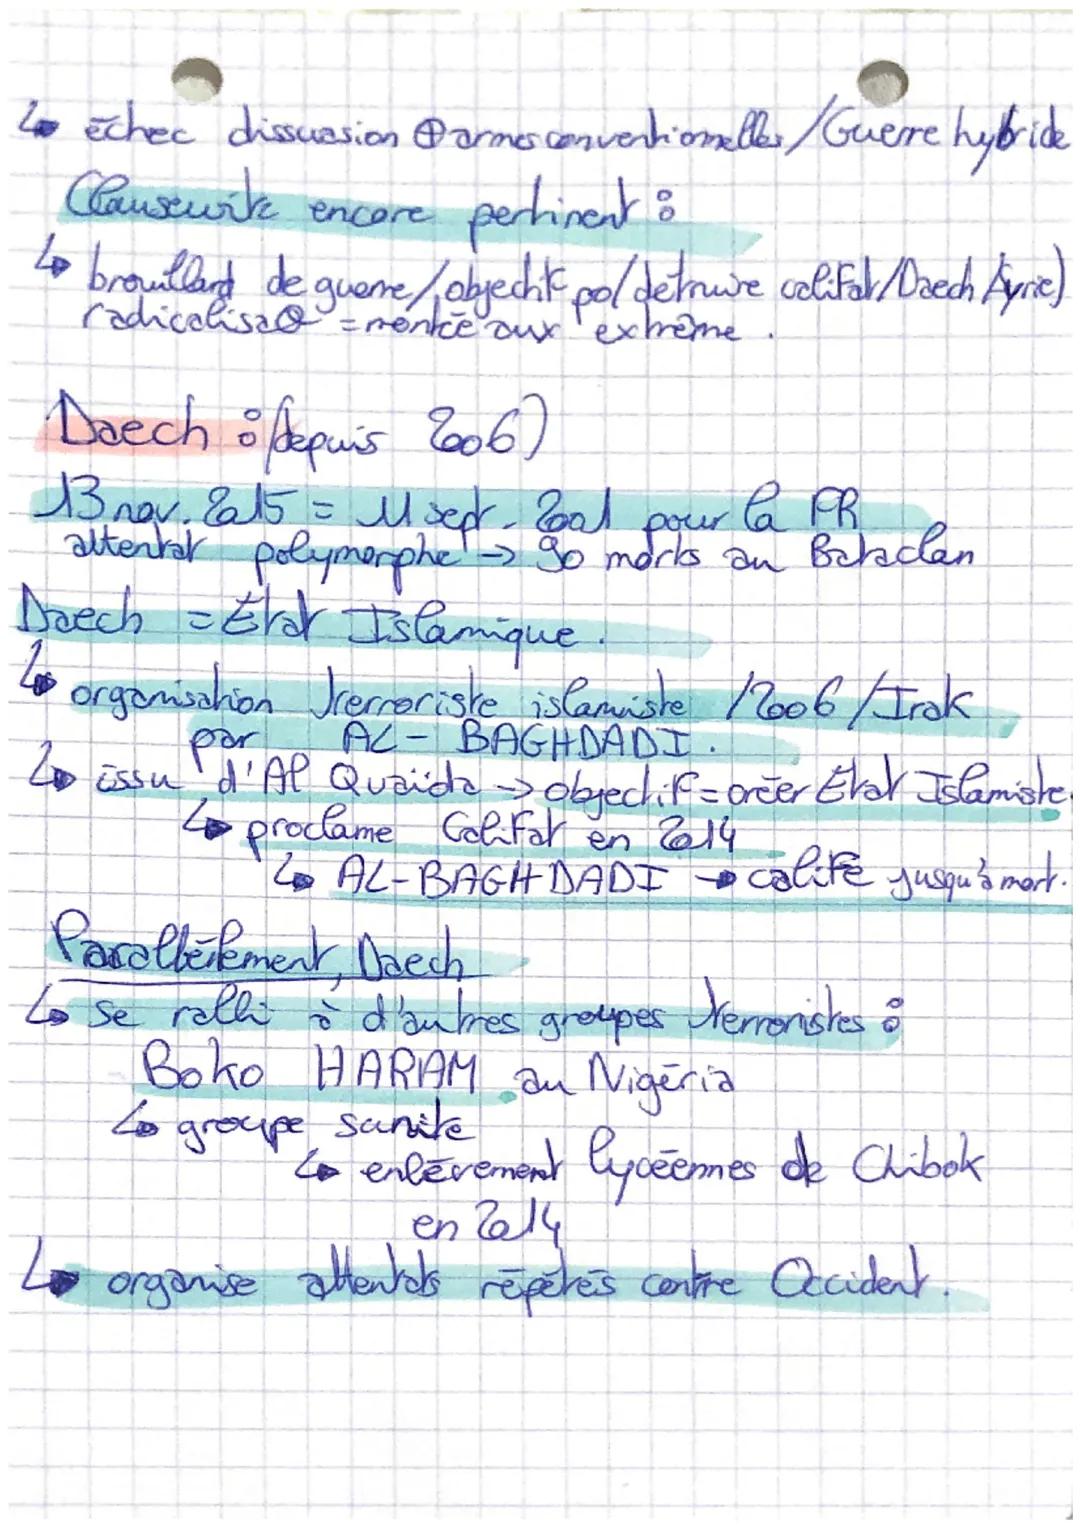 ↳ échec dissuasion ⊕ armes conventionnelles / Guerre hybride
Clausewitz encore pertinent :
↳ brouillard de guerre / objectif po / détruire califat / Daech Syrie)
radicalisa° = montée aux extrême.
Daech : (depuis 2006)
13 nov. 2015 = 11 sept. 2001 pour la FR
attentat polymorphe → 90 morts au Bataclan
Daech = État Islamique.
↳ organisation terroriste islamiste / 2006 / Irak
par AL-BAGHDADI.
↳ issu d'Al Quaïda → objectif = créer État Islamiste.
↳ proclame Califat en 2014
↳ AL-BAGHDADI → calife jusqu'à mort.
Parallèlement, Daech
↳ se ralli à d'autres groupes terroristes :
Boko HARAM au Nigéria
↳ groupe sunite
↳ enlèvement lycéennes de Chibok
en 2014
↳ organise attentats répétés contre Occident.